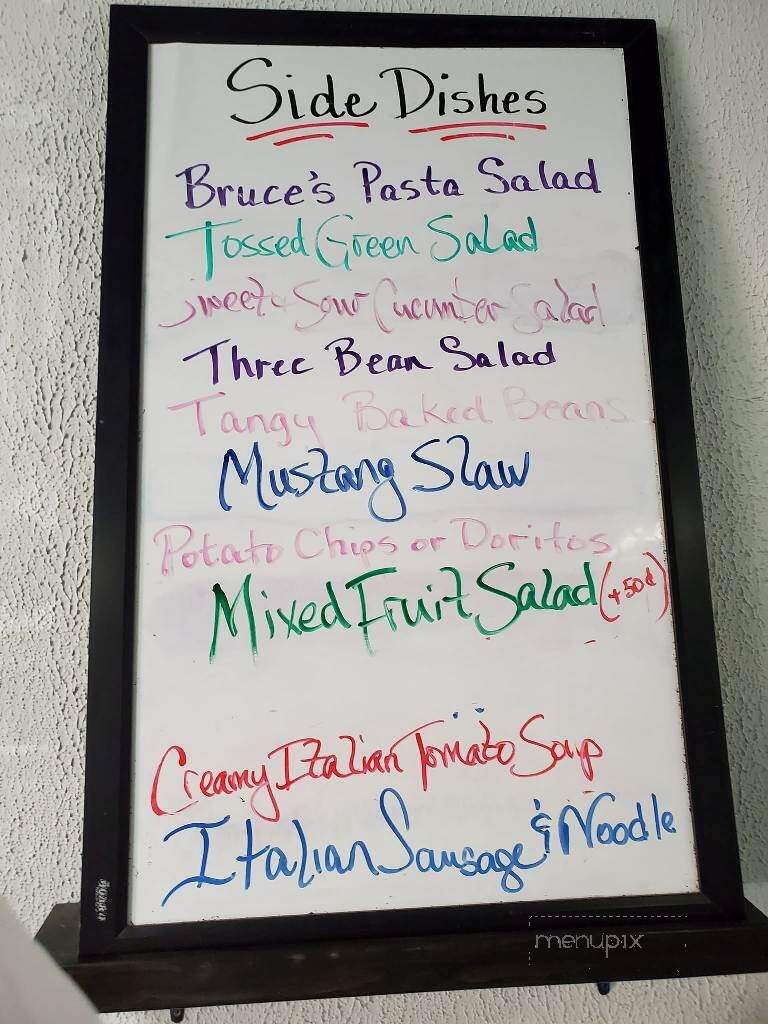 Side Dishes
Bruce's Pasta Salad
Tossed Green Salad
Sweet & Sour Cucumber Salad
Three Bean Salad
Tangy Baked Beans
Mustang Slaw
Potato Chips or Doritos
Mixed Fruit Salad (+50¢)
Creamy Italian Tomato Soup
Italian Sausage & Noodle
menupix